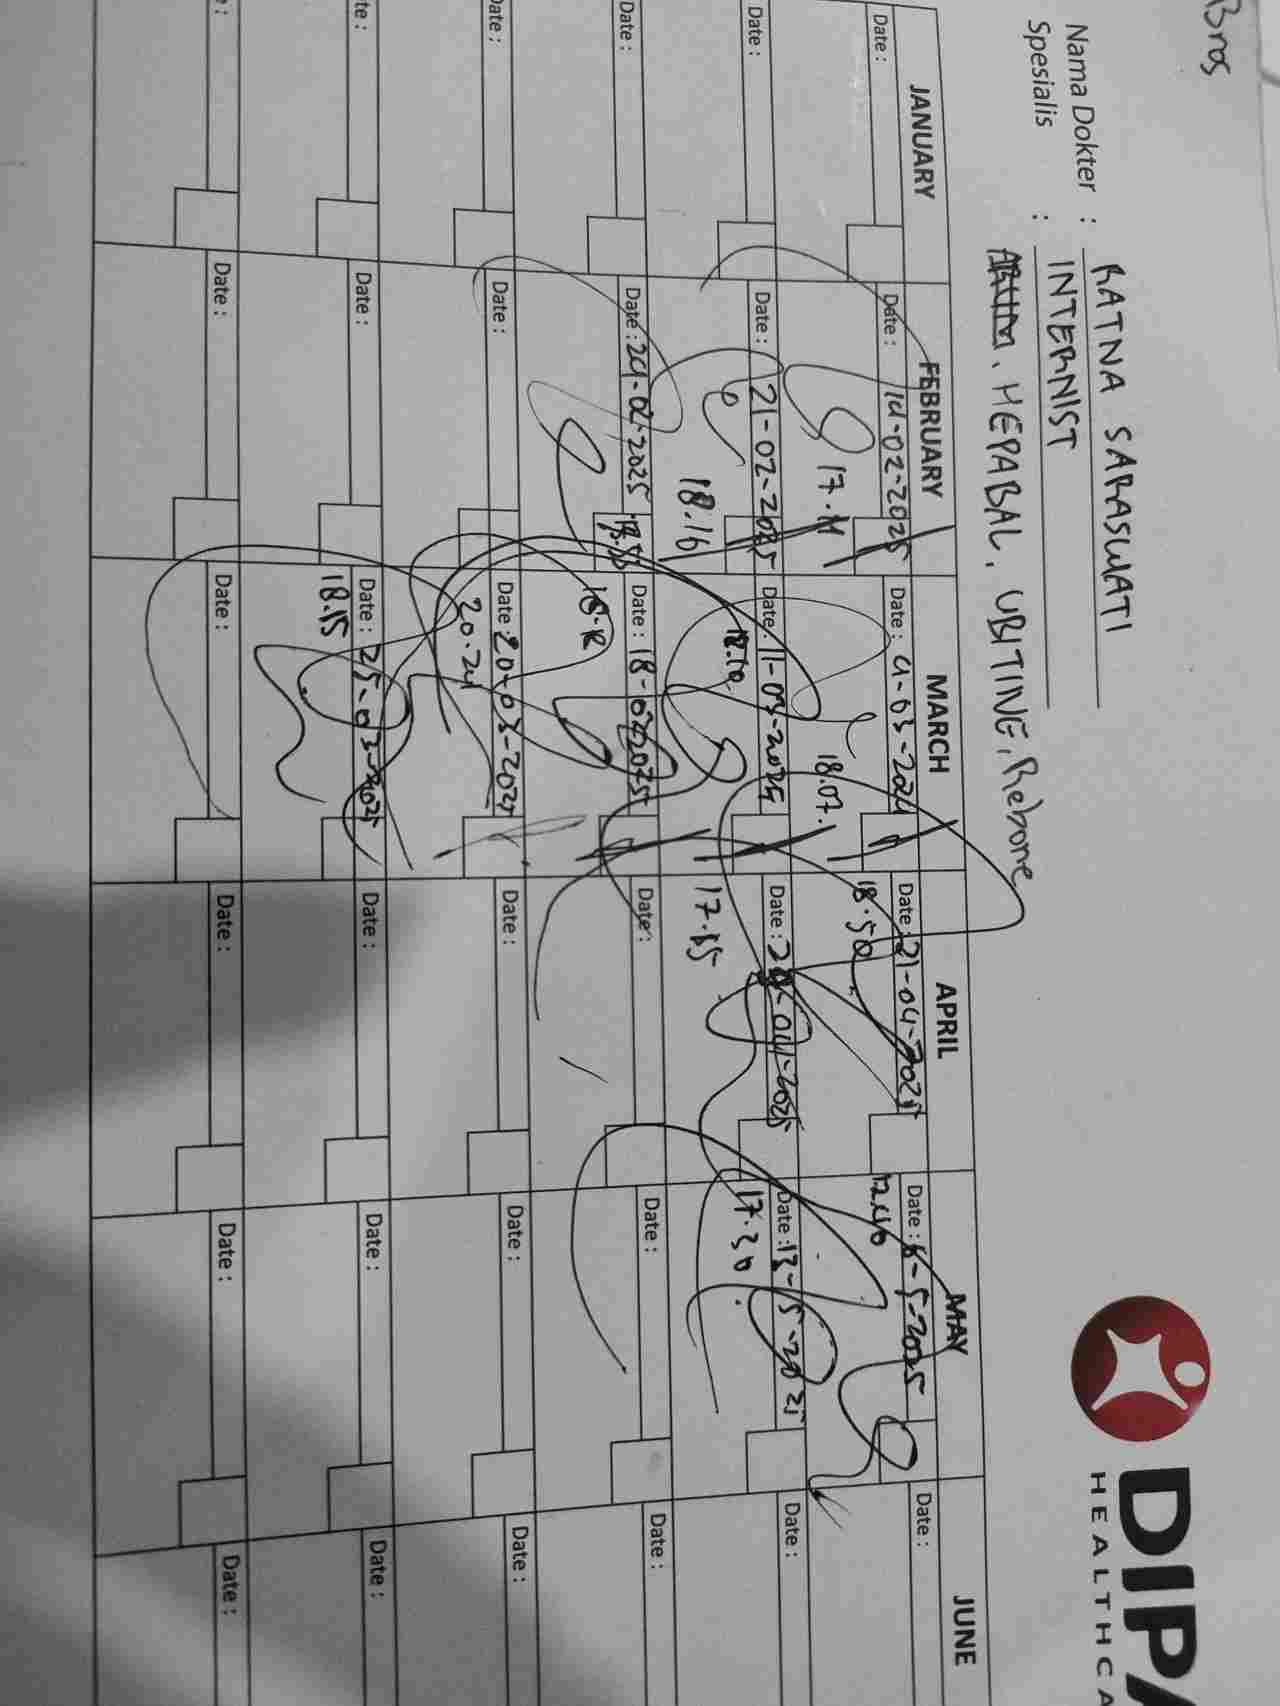 Bros
DIPA
HEALTHCA
Nama Dokter : RATNA SARASWATI
Spesialis : INTERNIST
HEPABAL, UBITINE, Rebone
JANUARY FEBRUARY MARCH APRIL MAY JUNE
Date : Date : 14-02-2025 Date : 4-03-202 Date : 21-04-2025 Date : 6-5-2025 Date :
17.11 18.07. 18.50 12.40
Date : Date : 21-02-2025 Date : 11-03-2025 Date : 28-04-2025 Date : 13-5-2025 Date :
18.16 18.10 17.15 17.30
Date : Date : 24-02-2025 Date : 18-03-2025 Date : Date : Date :
Date : Date : Date : 20-03-2025 Date : Date : Date :
20.24
Date : Date : 25-03-2025 Date : Date : Date :
18.15
Date : Date : Date : Date : Date :